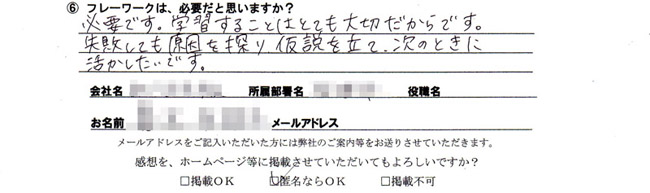 ⑥ フレーワークは、必要だと思いますか?
必要です。学習することはとても大切だからです。
失敗しても原因を探り、仮説を立て、次のときに
活かしたいです。
会社名 所属部署名 役職名
お名前 メールアドレス
メールアドレスをご記入いただいた方には弊社のご案内等をお送りさせていただきます。
感想を、ホームページ等に掲載させていただいてもよろしいですか?
□掲載OK ☑匿名ならOK □掲載不可